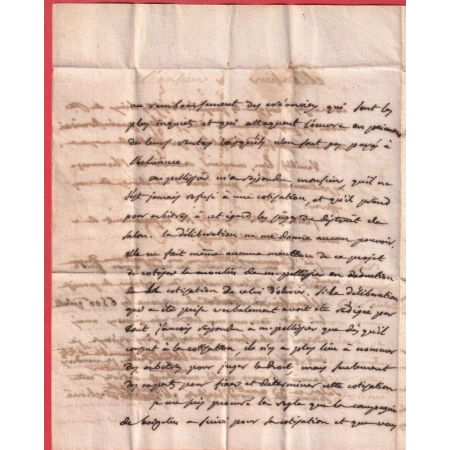 au remboursement des créanciers qui sont les
plus inquiets et qui attaquent l'œuvre en paiement
de leurs rentes lorsqu'ils n'en sont pas payés à
l'échéance
m pellissier m'a répondu monsieur, qu'il ne
s'est jamais refusé à une cotisation, et qu'il prend
pour arbitres à cet égard les juges du district de
salon. la délibération ne me donne aucun pouvoir.
elle ne fait même aucune mention de ce projet
de cotiser le moulin de m pellissier en déduction
de la cotisation de celui d'olivier. Si la délibération
qui a été prise verbalement avait été rédigée par
fait j'aurais répondu à m pellissier que dès qu'il
consent à la cotisation, il n'y a plus lieu à nommer
des arbitres pour juger le droit, mais seulement
des experts pour fixer et déterminer cette cotisation
je ne puis prendre la règle que la compagnie
de a suivi pour la cotisation et que vous